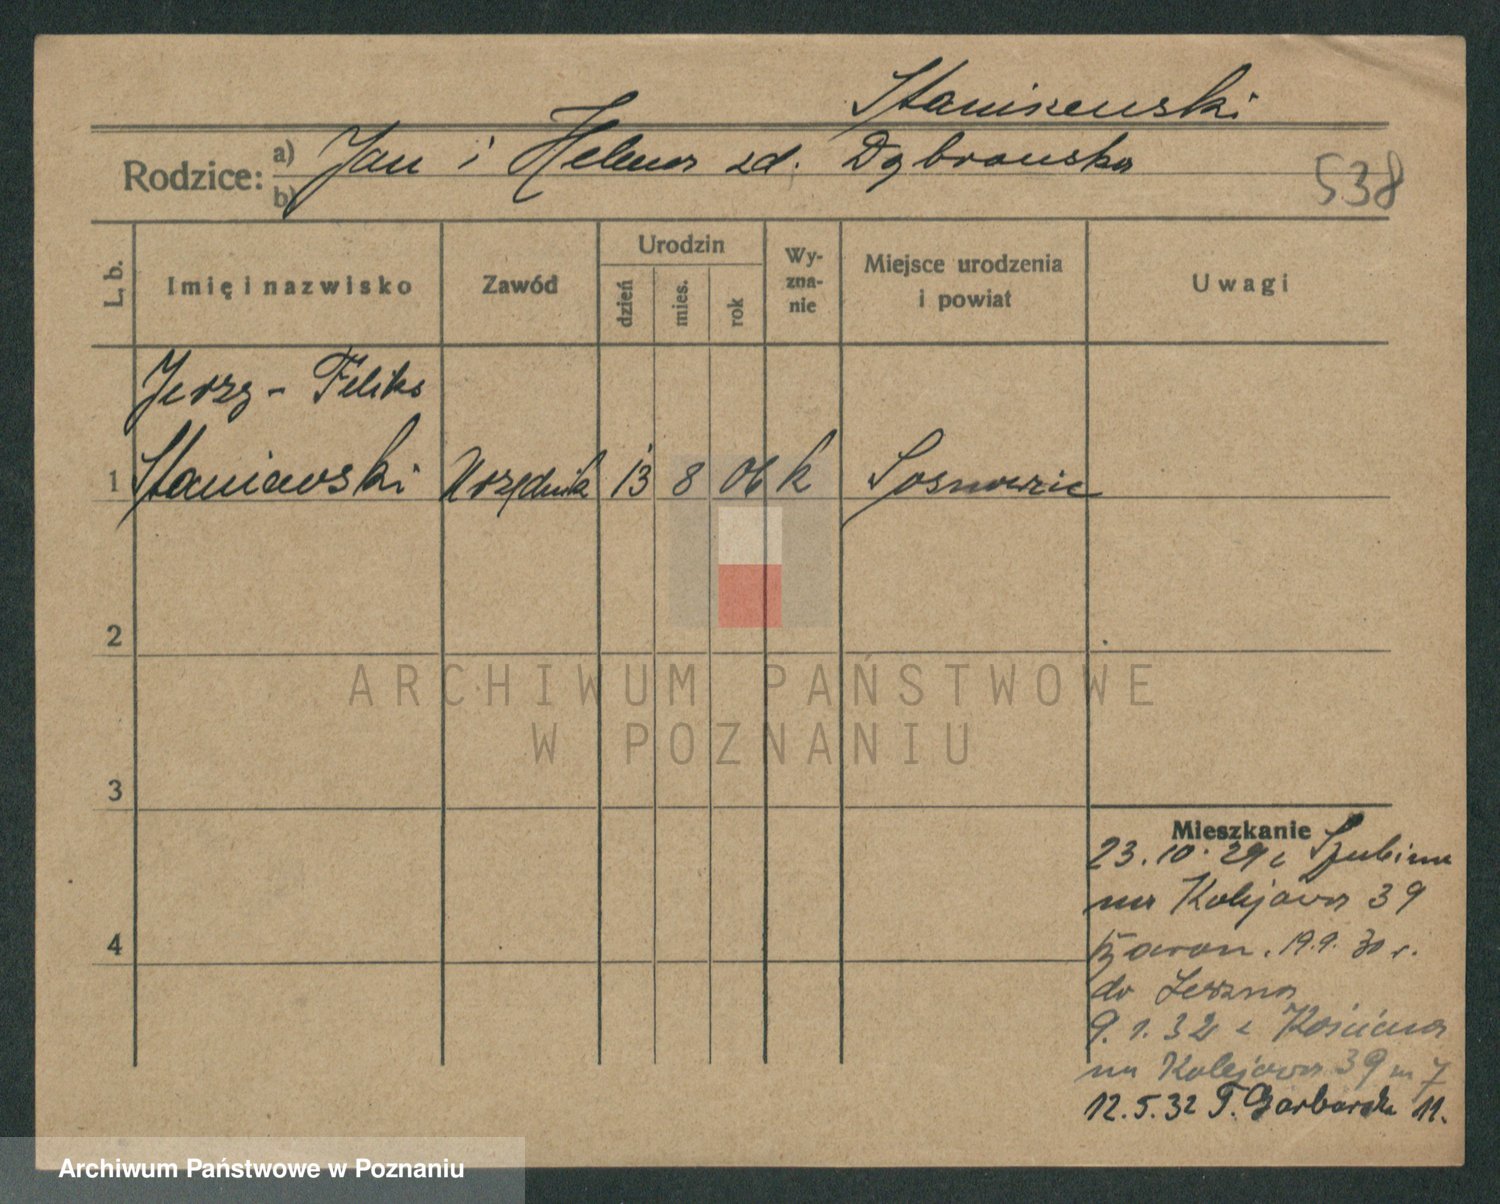 Staniszewski
Rodzice: a) b) Jan i Helena zd. Dąbrowska
538
L. b. Imię i nazwisko Zawód Urodzin dzień mies. rok Wy-zna-nie Miejsce urodzenia i powiat Uwagi
Jerzy - Feliks
1 Staniewski Urzędnik 13 8 06 k Sosnowiec
2
3
4
ARCHIWUM PAŃSTWOWE
W POZNANIU
Mieszkanie
23.10.29 z Szubina
na Kolejowa 39
19.9.30 r.
do Leszna
9.1.32 z Kościana
na Kolejowa 39 m 7
12.5.32 T. Garbarska 11.
Archiwum Państwowe w Poznaniu